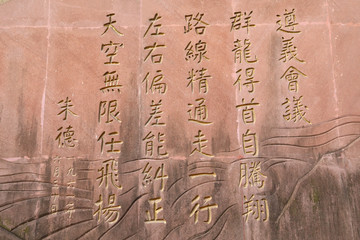 遵義會議
群龍得首自騰翔
路線精通走一行
左右偏差能糾正
天空無限任飛揚
朱德